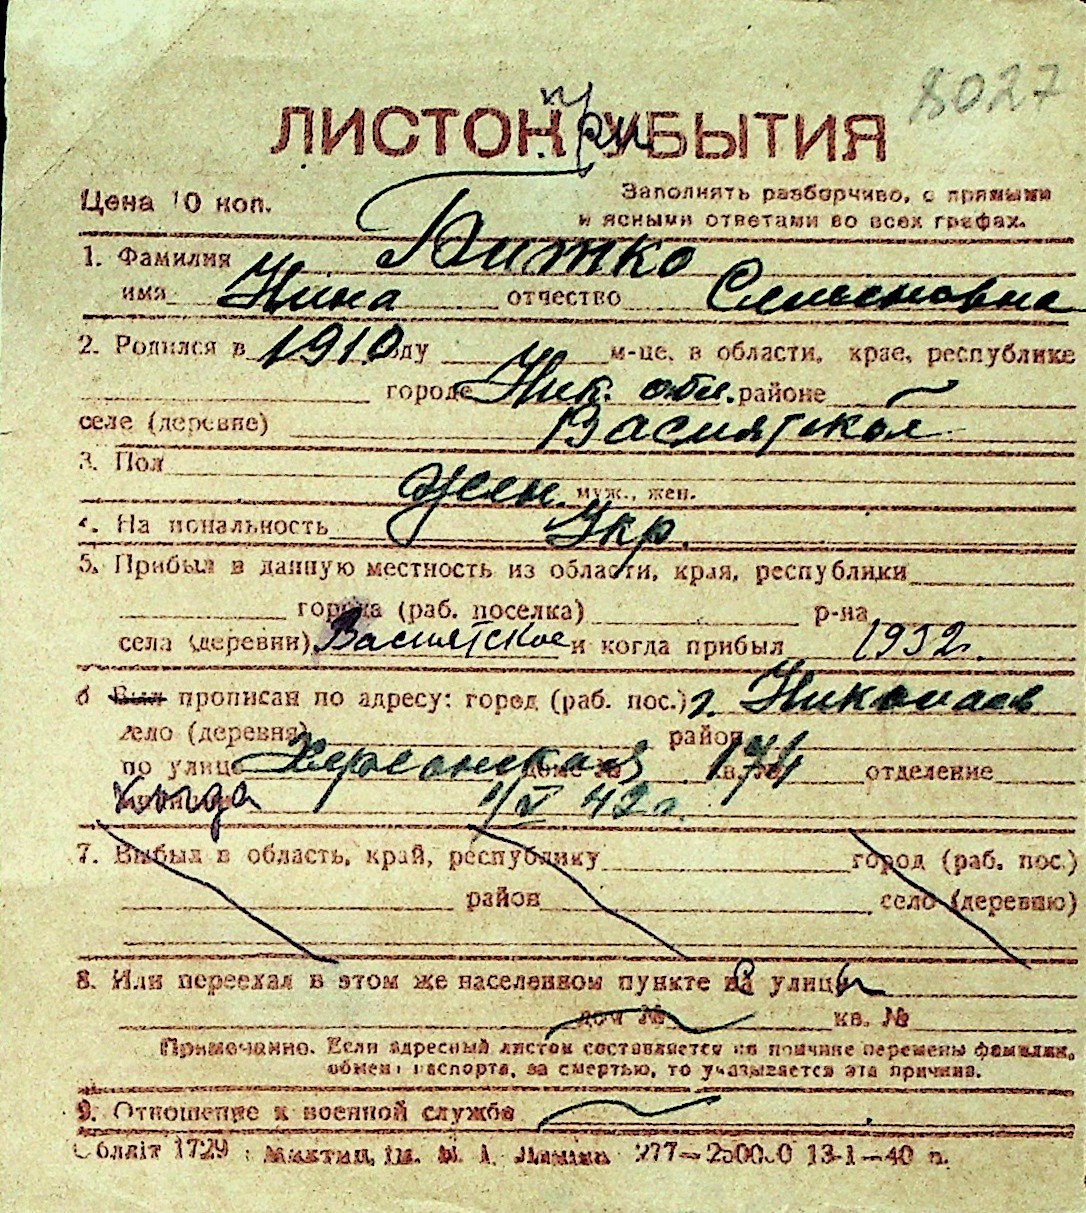 8027
ЛИСТОК при УБЫТИЯ
Цена 10 коп.
Заполнять разборчиво, с прямыми
и ясными ответами во всех графах.
1. Фамилия Битко
имя Нина отчество Семеновна
2. Родился в 1910 оду м-це, в области, крае, республике
городе Ник. обл. районе
селе (деревне) Васиятской
3. Пол
жен. муж., жен.
4. На иональность Укр.
5. Прибыл в данную местность из области, края, республики
города (раб. поселка) р-на
села (деревни) Васиятское и когда прибыл 1932г.
6 Был прописан по адресу: город (раб. пос.) г. Николаев
село (деревня) район
по улице Херсонская доме № 174 кв. № отделение
Когда 1/V 42 г.
7. Выбыл в область, край, республику город (раб. пос.)
район село (деревню)
8. Или переехал в этом же населенном пункте на улицы
дом № кв. №
Примечание. Если адресный листок составляется по причине перемены фамилии,
обмена паспорта, за смертью, то указывается эта причина.
9. Отношение к военной службе
Облліт 1729 277—250000 13-1—40 п.